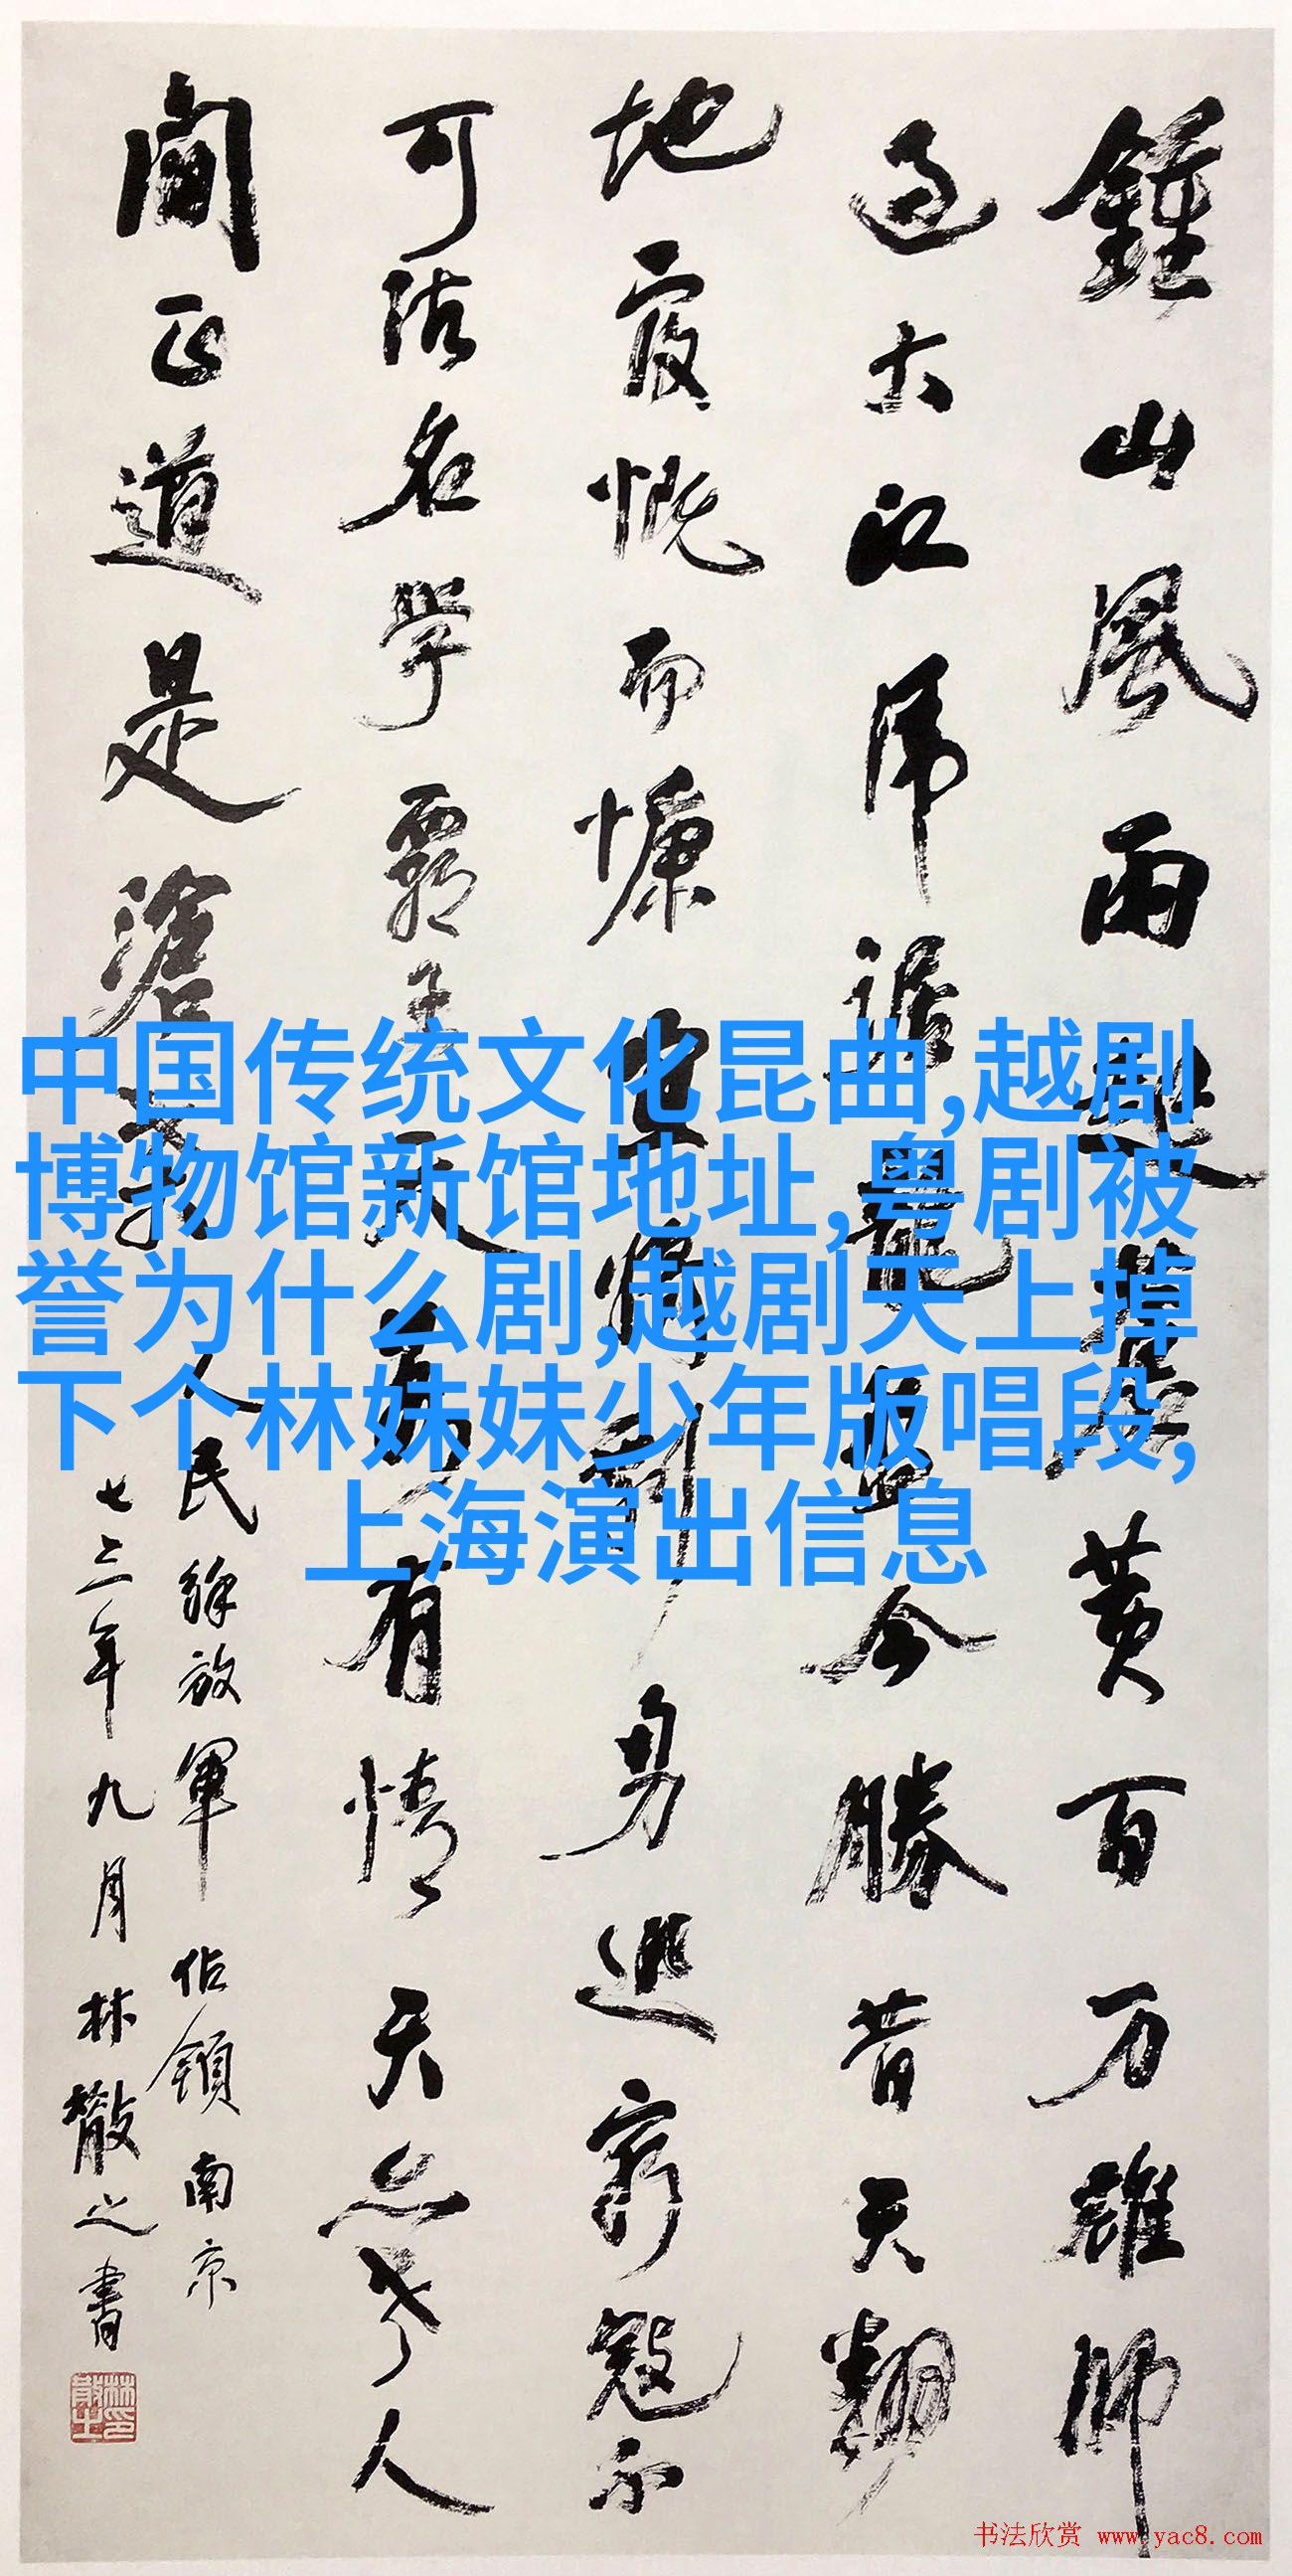 鍾山風雨起蒼黄百万雄師
过大江虎踞龍盤今勝昔天翻
地覆慨而慷宜將剩勇追窮寇不
可沽名學霸王天若有情天亦老人
間正道是滄桑
人民解放軍佔領南京
七三年九月林散之書
中国传统文化昆曲,越剧
博物馆新馆地址,粤剧被
誉为什么剧,越剧天上掉
下个林妹妹少年版唱段,
上海演出信息
林散之印
书法欣赏 www.yac8.com